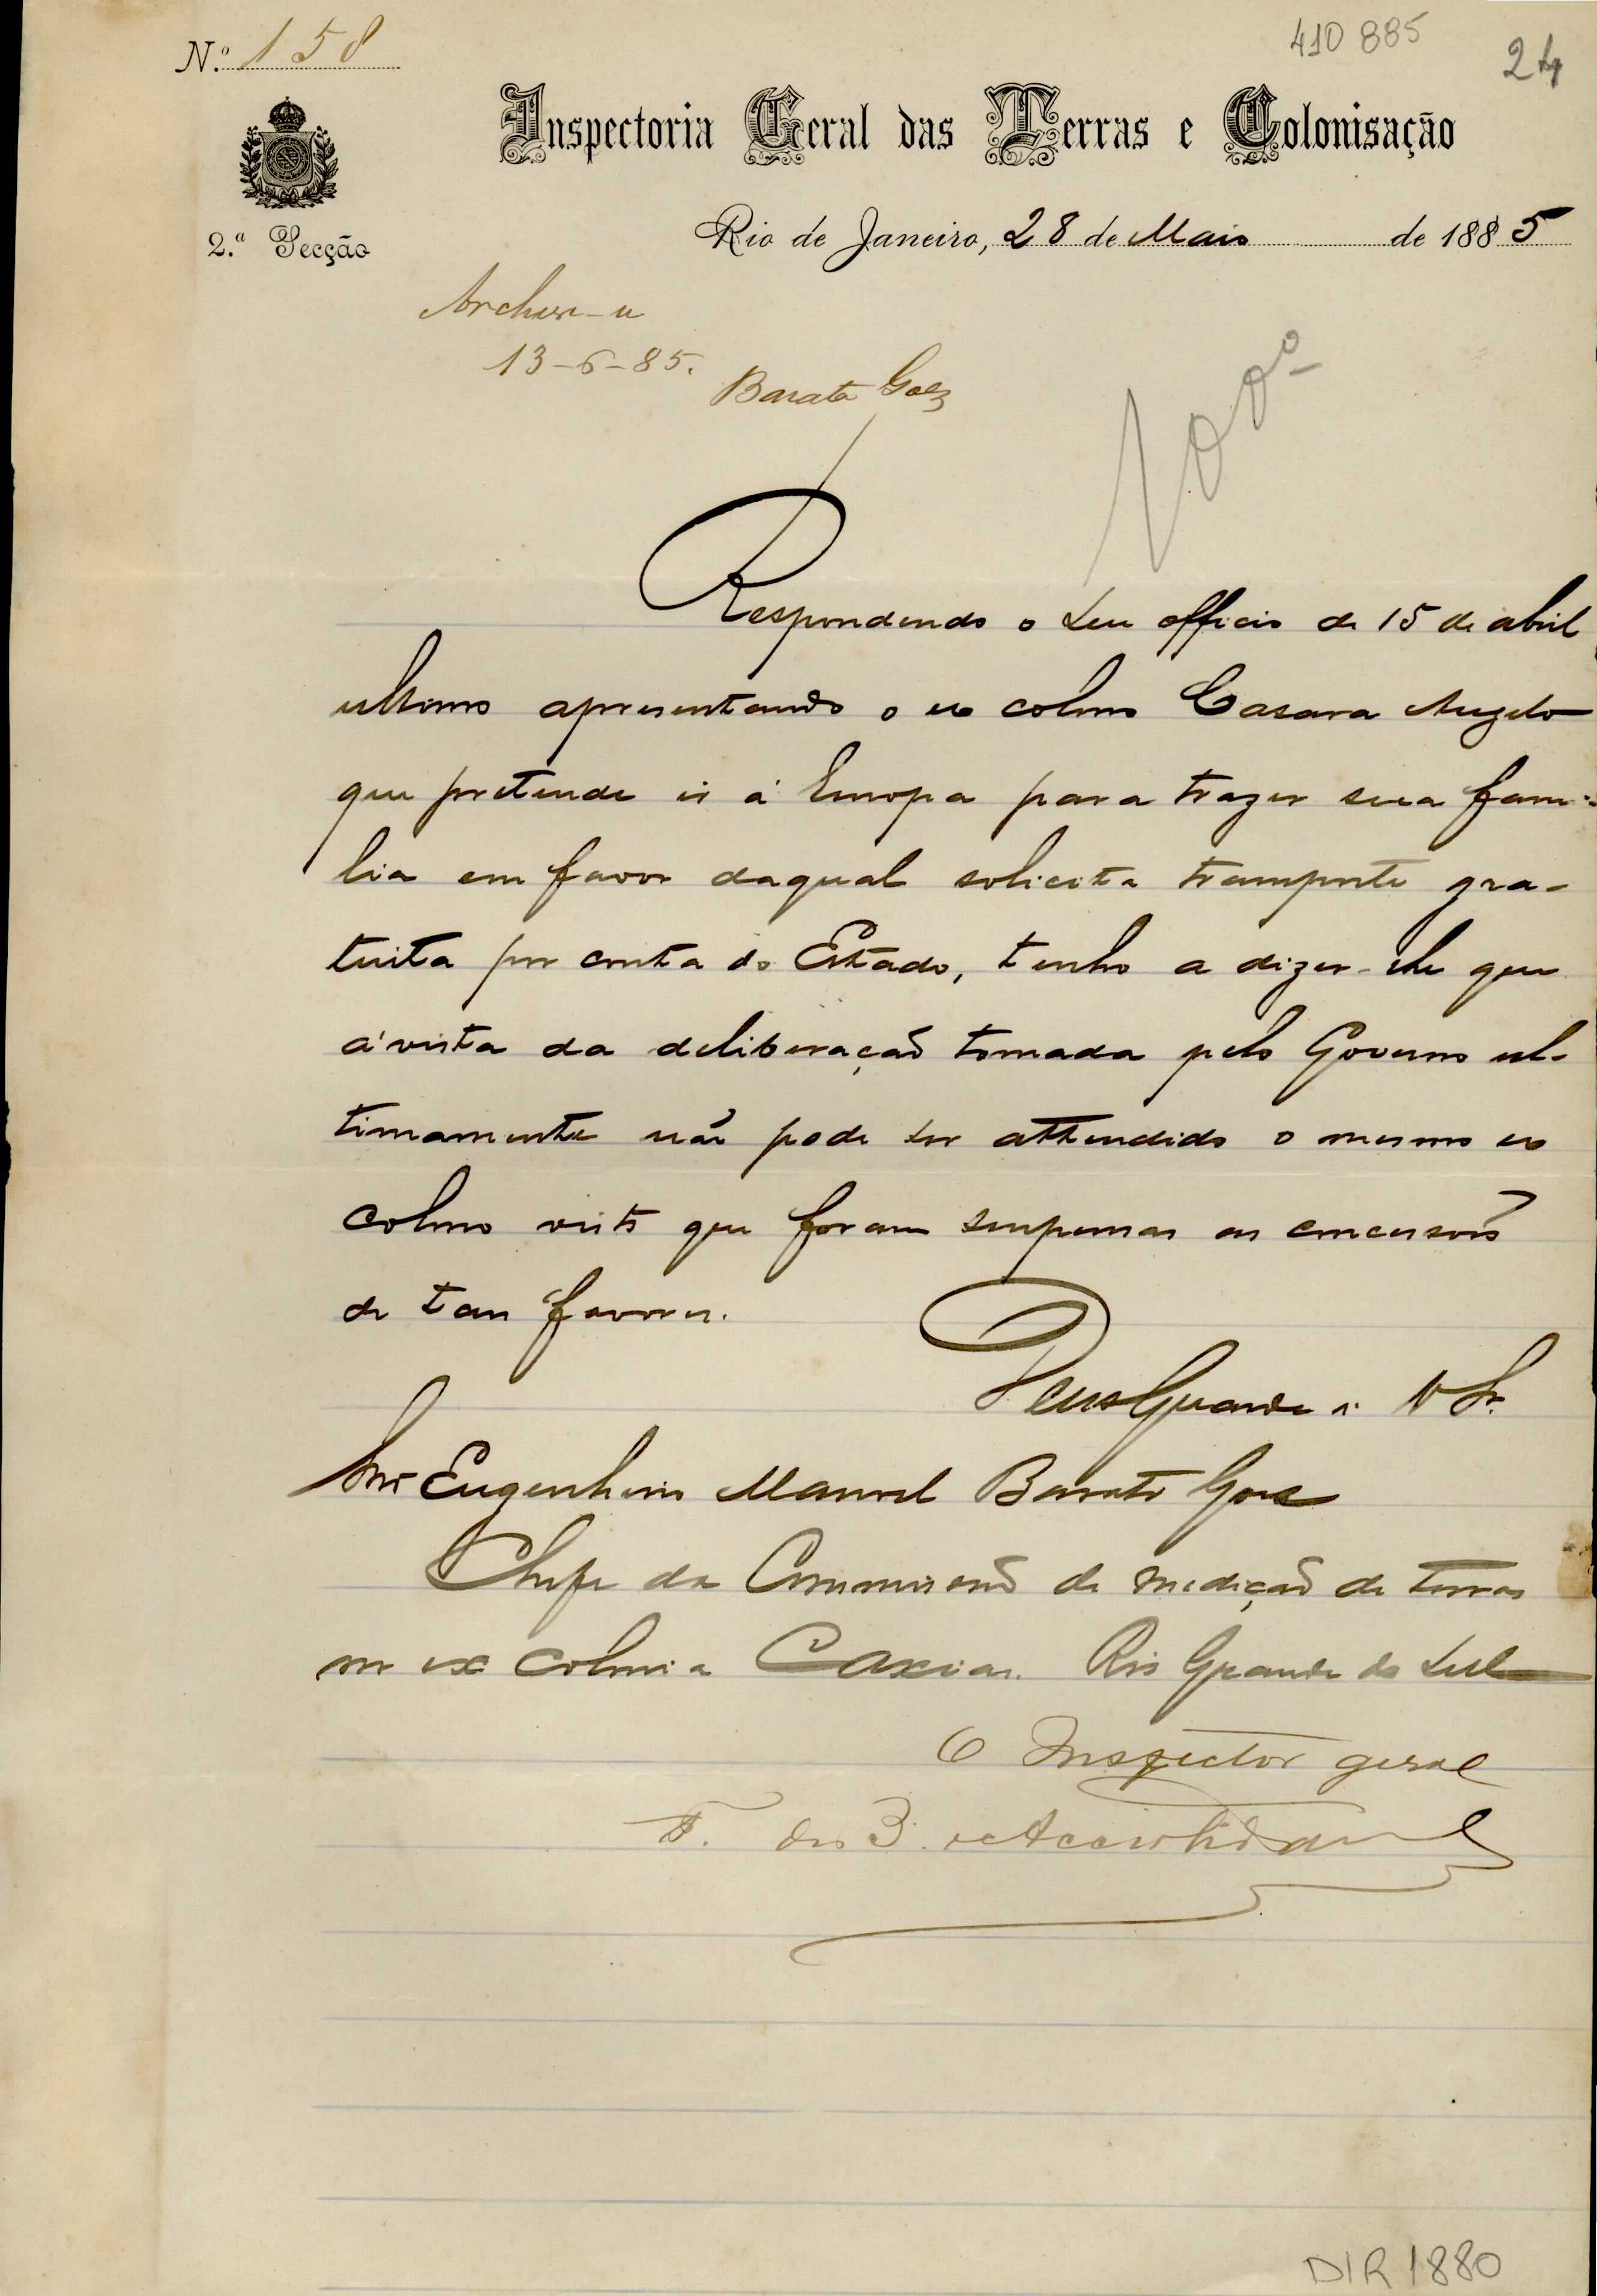 N.º 158
410 885
24
Inspectoria Geral das Terras e Colonisação
2.ª Secção
Rio de Janeiro, 28 de Maio de 1885
Archive-se
13-6-85.
Barata Goes
Respondendo o seu officio de 15 de abril
ultimo apresentando o ex colono Casara Angelo
que pretende ir á Europa para trazer sua fami-
lia em favor daqual solicita transporte gra-
tuito por conta do Estado, tenho a dizer-lhe que
á vista da deliberação tomada pelo Governo ul-
timamente não pode ser attendido o mesmo ex
colono visto que foram suspensas as concessões
de taes favores.
Deus Guarde a V Sr.
Snr Engenheiro Manoel Barata Goes
Chefe da Commissão de medição de terras
na ex colonia Caxias. Rio Grande do Sul
O Inspector geral
F. de B. e Accioli de
DIR 1880